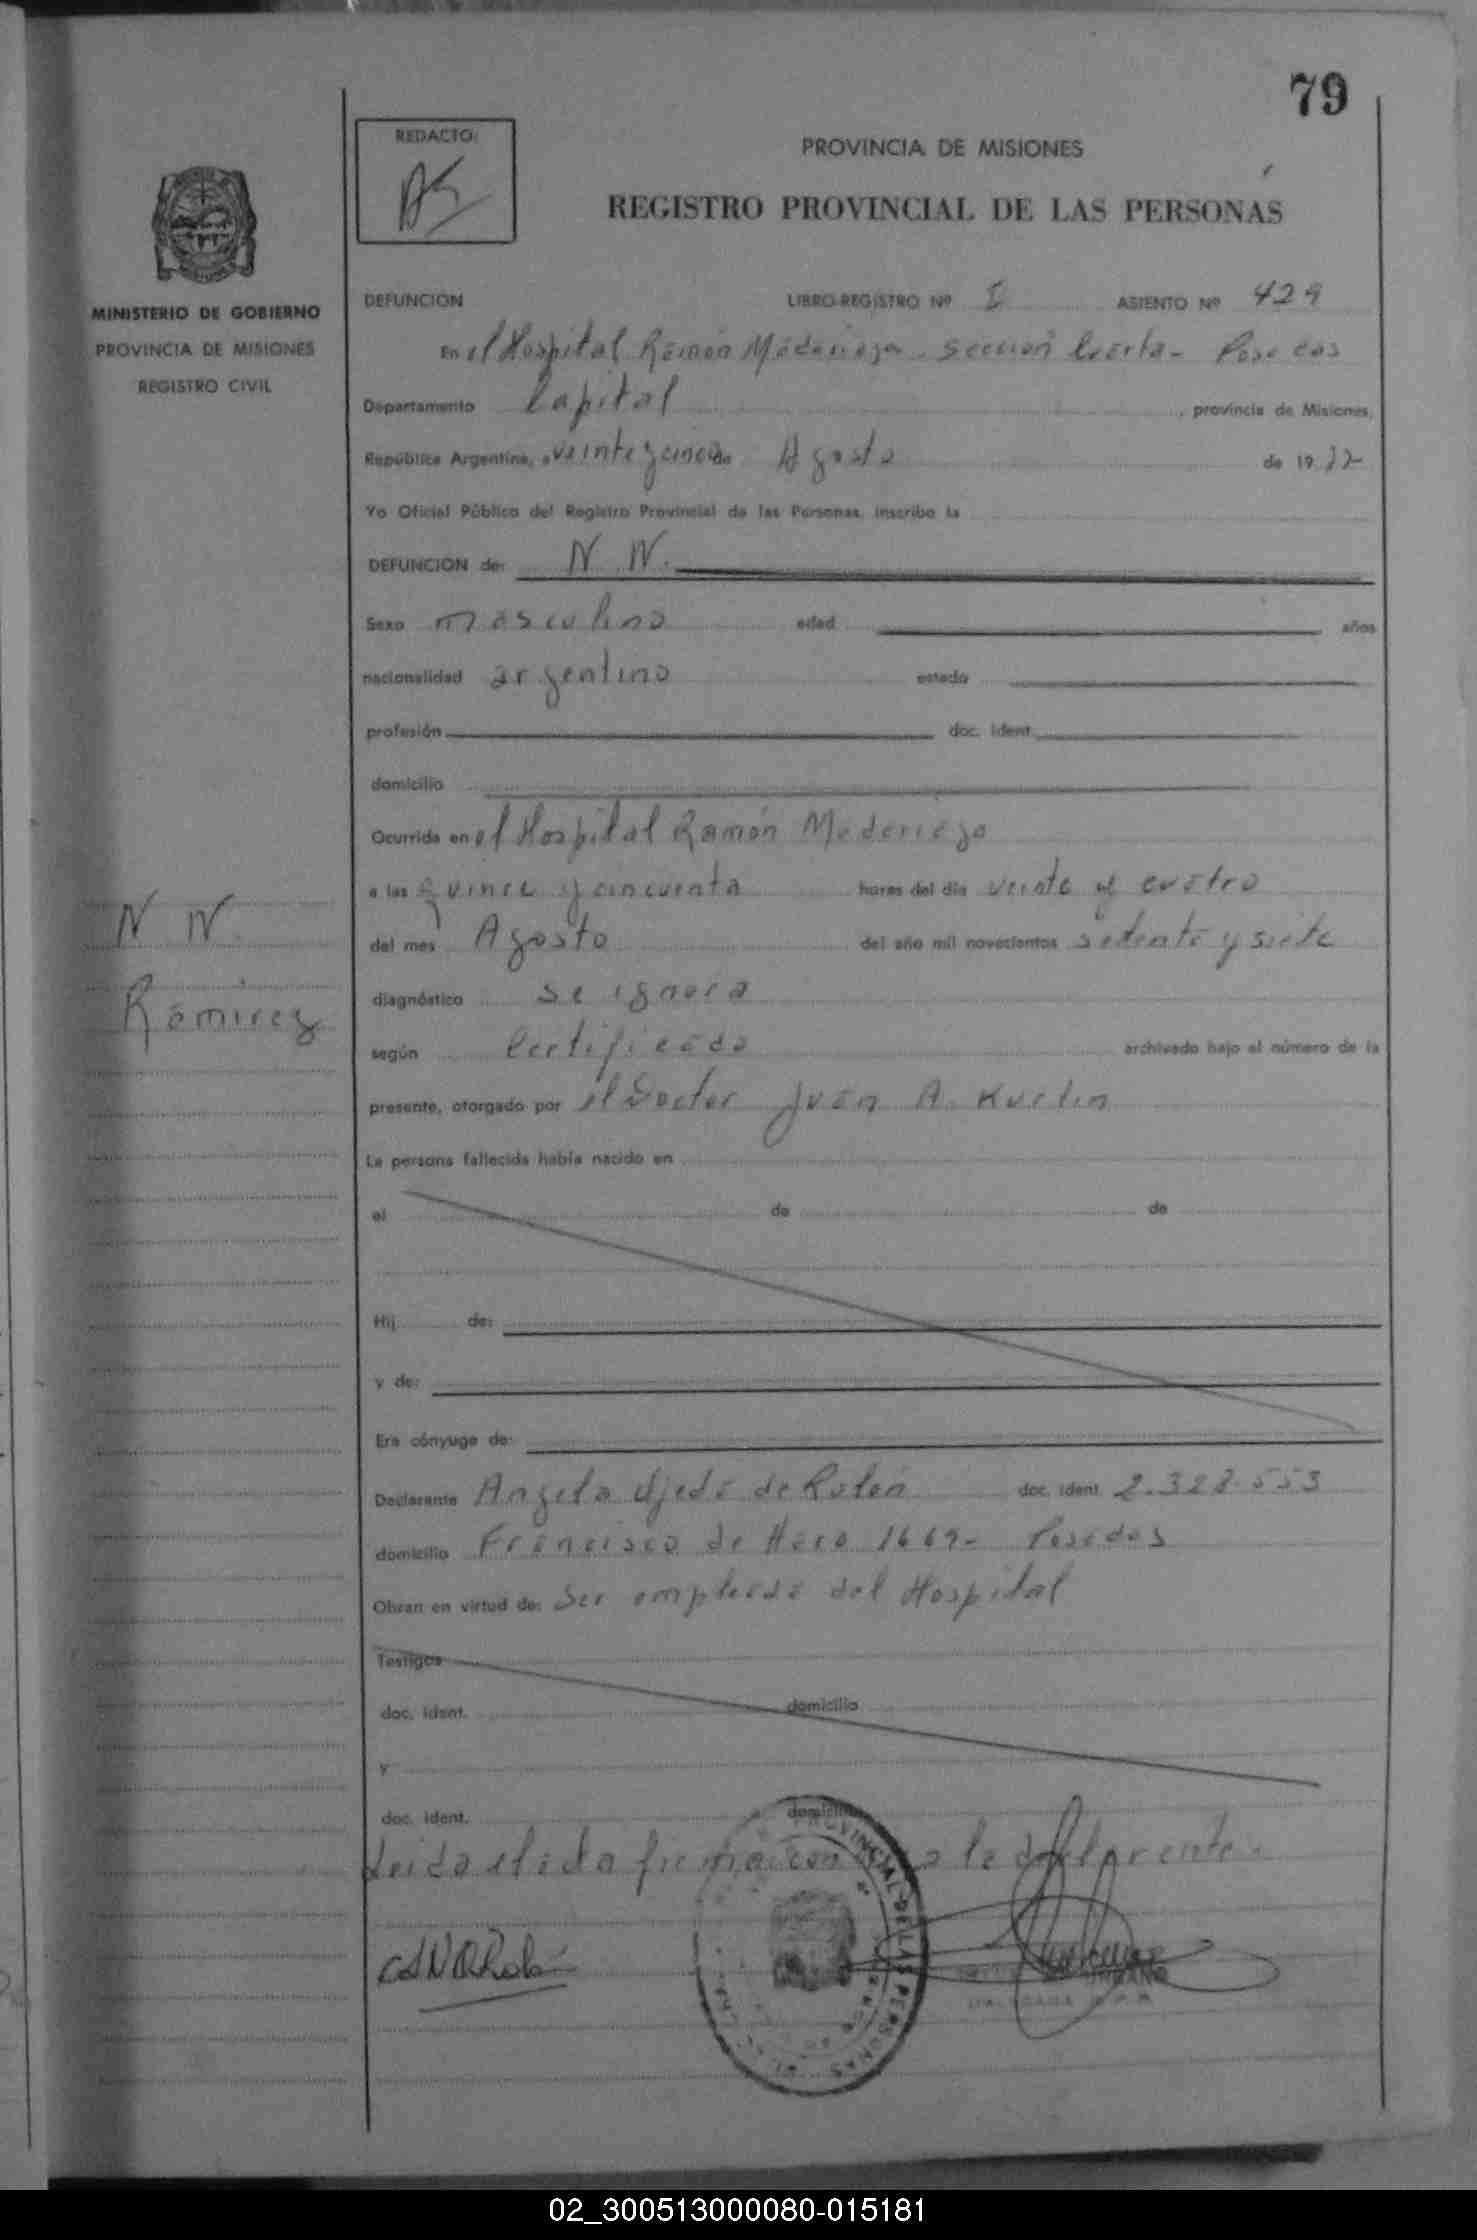 79
REDACTO:
PROVINCIA DE MISIONES
REGISTRO PROVINCIAL DE LAS PERSONAS
MINISTERIO DE GOBIERNO
PROVINCIA DE MISIONES
REGISTRO CIVIL
DEFUNCION LIBRO-REGISTRO Nº I ASIENTO Nº 429
En el Hospital Ramón Madariaga - Sección Cuarta - Posadas
Departamento Capital, provincia de Misiones,
República Argentina, a veinte y cinco de Agosto de 1977
Yo Oficial Público del Registro Provincial de las Personas, inscribo la
DEFUNCION de: N. N.
Sexo masculino edad años
nacionalidad argentino estado
profesión doc. ident.
domicilio
Ocurrida en el Hospital Ramón Madariaga
a las quince y cincuenta horas del día veinte y cuatro
del mes Agosto del año mil novecientos setenta y siete
diagnóstico se ignora
según Certificado archivado bajo el número de la
presente, otorgado por el Doctor Juan A. Kurlin
La persona fallecida había nacido en
el de de
Hij de:
y de:
Era cónyuge de:
Declarante Angela Ojeda de Rolón doc. ident. 2.328.553
domicilio Francisco de Haro 1669- Posadas
Obran en virtud de: Ser empleada del Hospital
Testigos
doc. ident. domicilio
y
doc. ident. domicilio
Leida el acta firma con
N N.
Ramirez
PROVINCIAL DE LAS PERSONAS
02_300513000080-015181